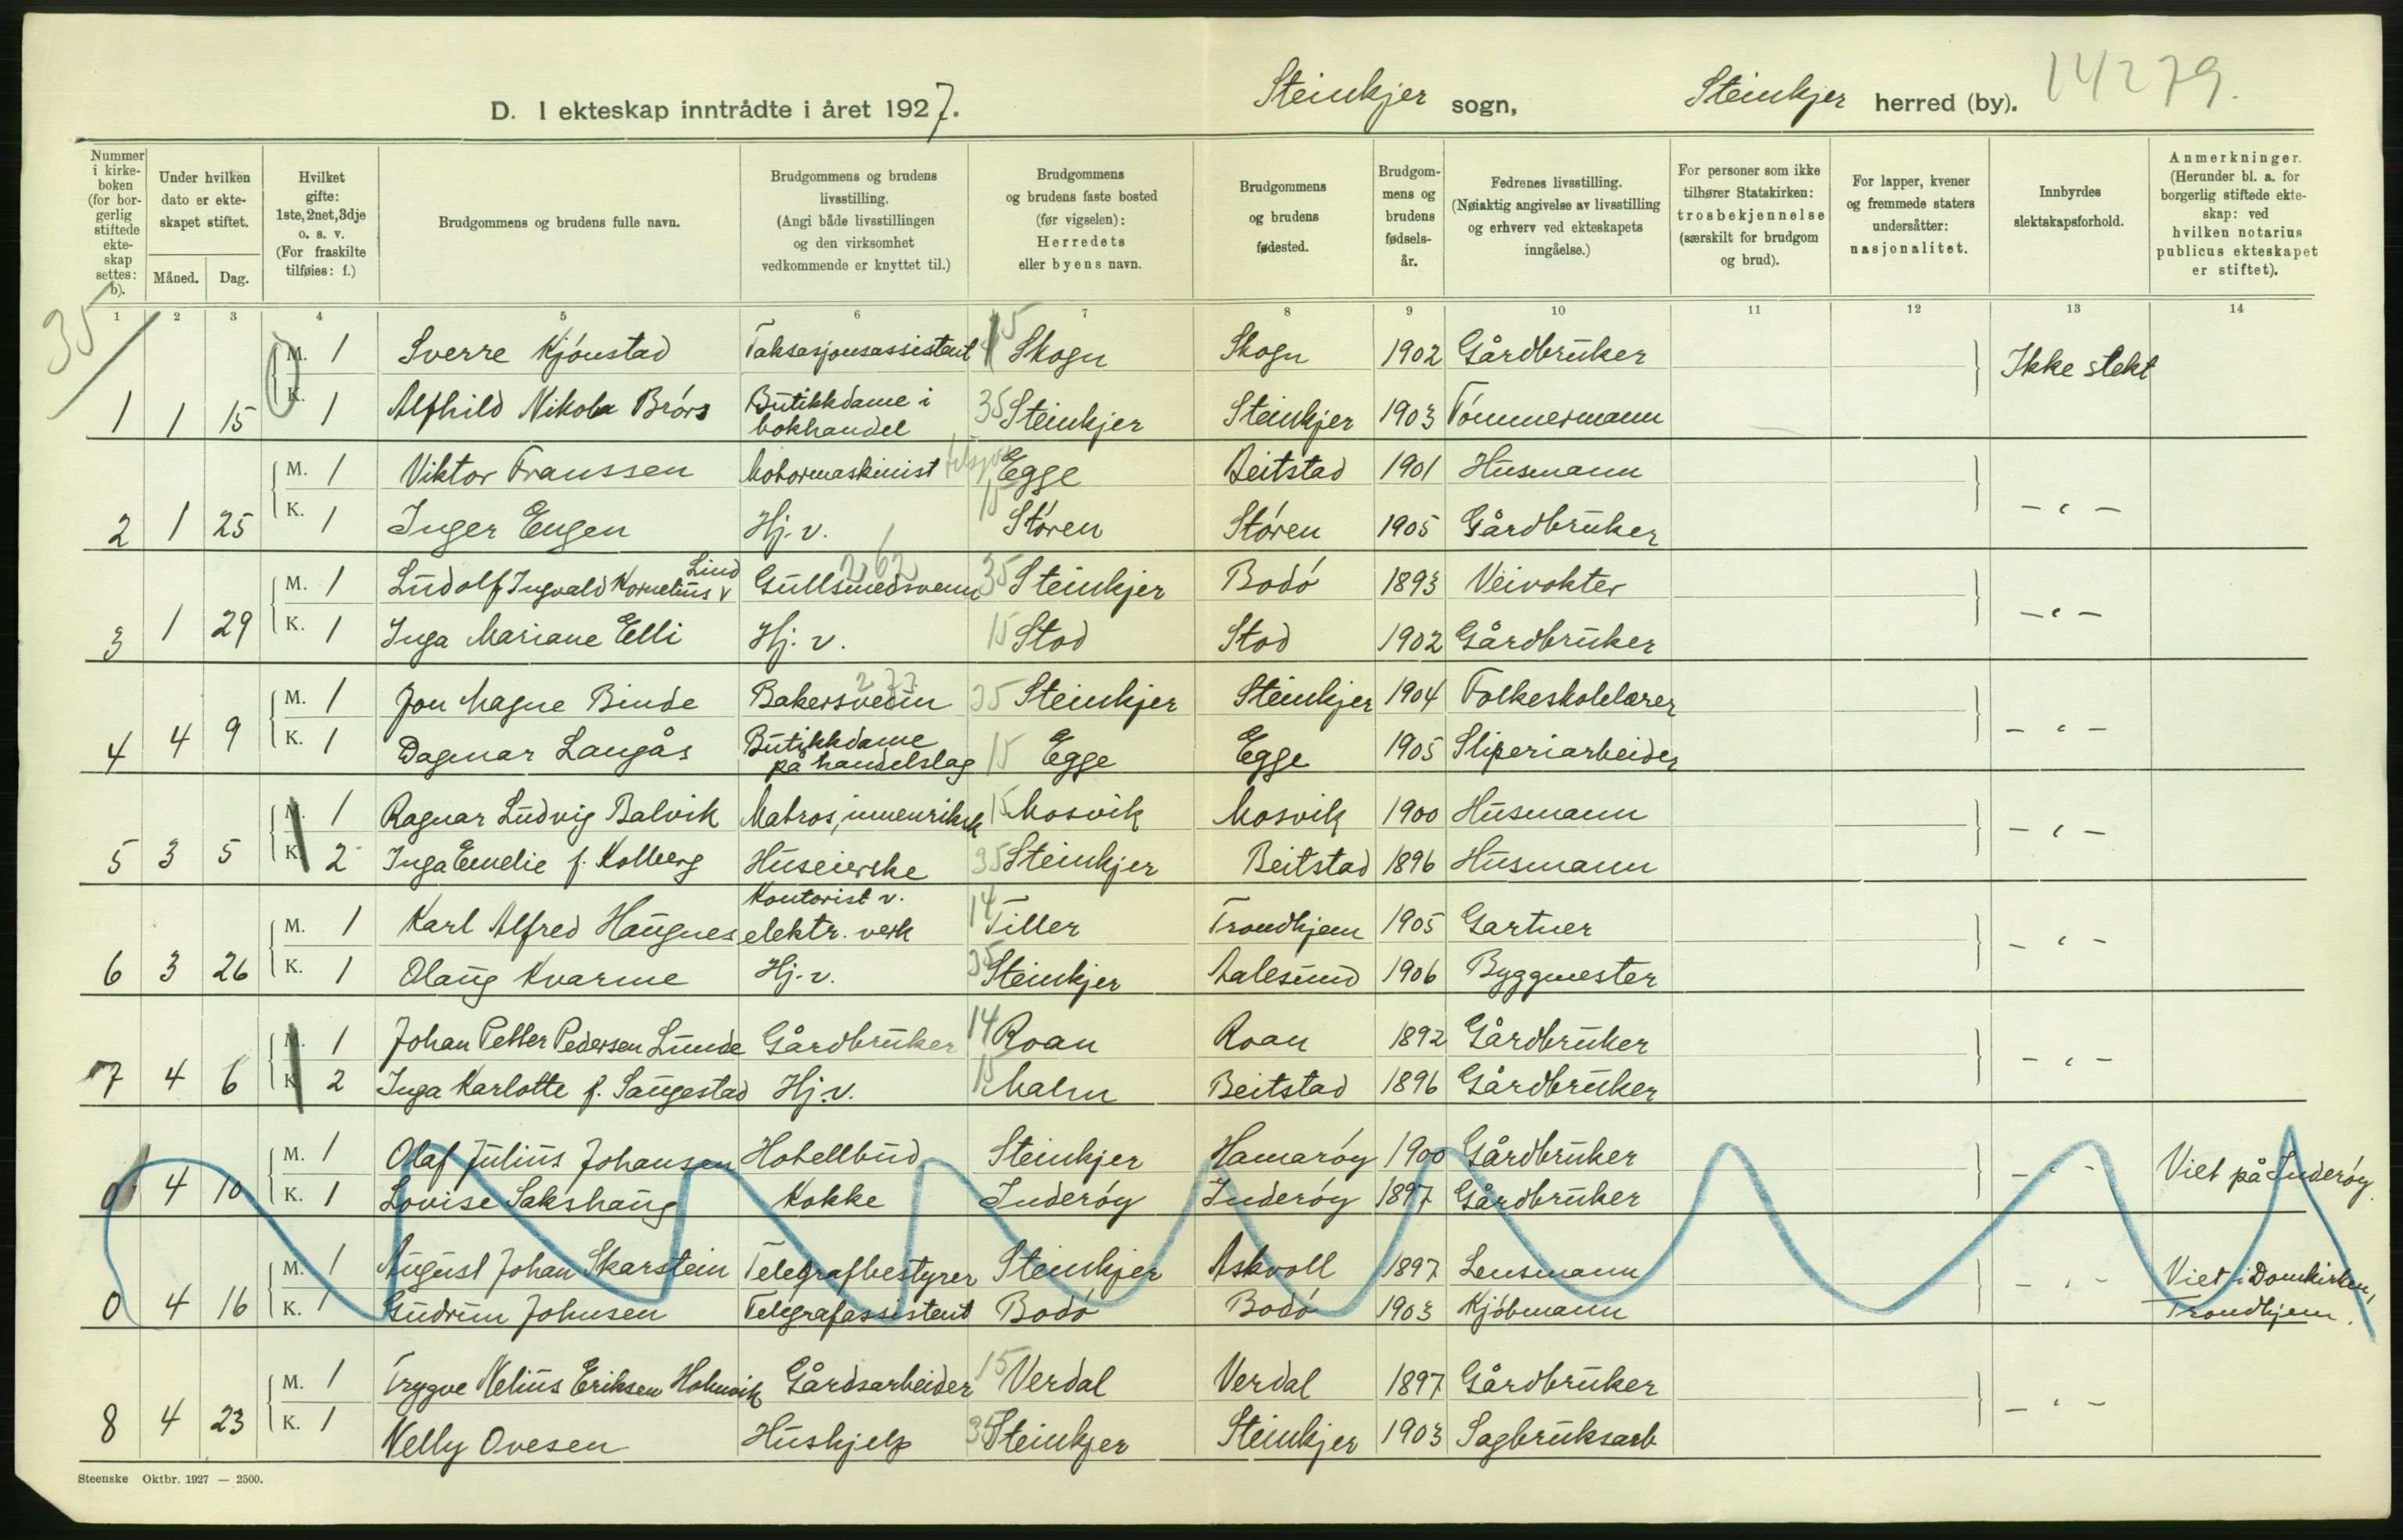 14279.
D. I ekteskap inntrådte i året 1927. Steinkjer sogn, Steinkjer herred (by).
Nummer i kirke-boken (for bor-gerlig stiftede ekte-skap settes: b).
Under hvilken dato er ekte-skapet stiftet.
Måned. Dag.
Hvilket gifte: 1ste, 2net, 3dje o. s. v. (For fraskilte tilføies: f.)
Brudgommens og brudens fulle navn.
Brudgommens og brudens livsstilling. (Angi både livsstillingen og den virksomhet vedkommende er knyttet til.)
Brudgommens og brudens faste bosted (før vigselen): Herredets eller byens navn.
Brudgommens og brudens fødested.
Brudgom-mens og brudens fødsels-år.
Fedrenes livsstilling. (Nøiaktig angivelse av livsstilling og erhverv ved ekteskapets inngåelse.)
For personer som ikke tilhører Statskirken: trosbekjennelse (særskilt for brudgom og brud).
For lapper, kvener og fremmede staters undersåtter: nasjonalitet.
Innbyrdes slektskapsforhold.
Anmerkninger. (Herunder bl. a. for borgerlig stiftede ekte-skap: ved hvilken notarius publicus ekteskapet er stiftet).
1 2 3 4 5 6 7 8 9 10 11 12 13 14
35
M. 1 Sverre Kjónstad Taksasjonsassistent 15 Skogn Skogn 1902 Gårdbruker Ikke slekt
1 1 15 K. 1 Alfhild Nikola Brórs Butikkdame i bokhandel 35 Steinkjer Steinkjer 1903 Tómmermann
M. 1 Viktor Franssen Motormaskinist Egge Beitstad 1901 Husmann
2 1 25 K. 1 Inger Engen Hj. v. 15 Stóren Stóren 1905 Gårdbruker - " -
M. 1 Ludolf Ingvald Kornelius v Lind Gullsmedsvenn 35 Steinkjer Bodó 1893 Veivokter
3 1 29 K. 1 Inga Mariane Elli Hj. v. 15 Stod Stod 1902 Gårdbruker - " -
M. 1 Jon Magne Binde Bakersvenn 277 35 Steinkjer Steinkjer 1904 Folkeskolelærer
4 4 9 K. 1 Dagmar Langås Butikkdame på handelslag 15 Egge Egge 1905 Sliperiarbeider - " -
M. 1 Ragnar Ludvig Balvik Matros, innenriksk 15 Mosvik Mosvik 1900 Husmann
5 3 5 K. 2 Inga Emelie f. Kolberg Huseierske 35 Steinkjer Beitstad 1896 Husmann - " -
M. 1 Karl Alfred Haugnes Kontorist v. elektr. verk 14 Tiller Trondhjem 1905 Gartner
6 3 26 K. 1 Olaug Kvarme Hj. v. 35 Steinkjer Aalesund 1906 Byggmester - " -
M. 1 Johan Petter Pedersen Lunde Gårdbruker 14 Roan Roan 1892 Gårdbruker
7 4 6 K. 2 Inga Karlotte f. Saugestad Hj. v. 15 Malm Beitstad 1896 Gårdbruker - " -
M. 1 Olaf Julius Johansen Hotellbud Steinkjer Hamaróy 1900 Gårdbruker
0 4 10 K. 1 Lovise Sakshaug Kokke Inderóy Inderóy 1897 Gårdbruker - " - Viet på Inderóy.
M. 1 August Johan Skarstein Telegrafbestyrer Steinkjer Askvoll 1897 Lensmann
0 4 16 K. 1 Gudrun Johnsen Telegrafassistent Bodó Bodó 1903 Kjóbmann - " - Viet i Domkirken, Trondhjem.
M. 1 Trygve Nelius Eriksen Holmvik Gårdsarbeider 15 Verdal Verdal 1897 Gårdbruker
8 4 23 K. 1 Nelly Ovesen Hushjelp 35 Steinkjer Steinkjer 1903 Sagbruksarb - " -
Steenske Oktbr. 1927 — 2500.